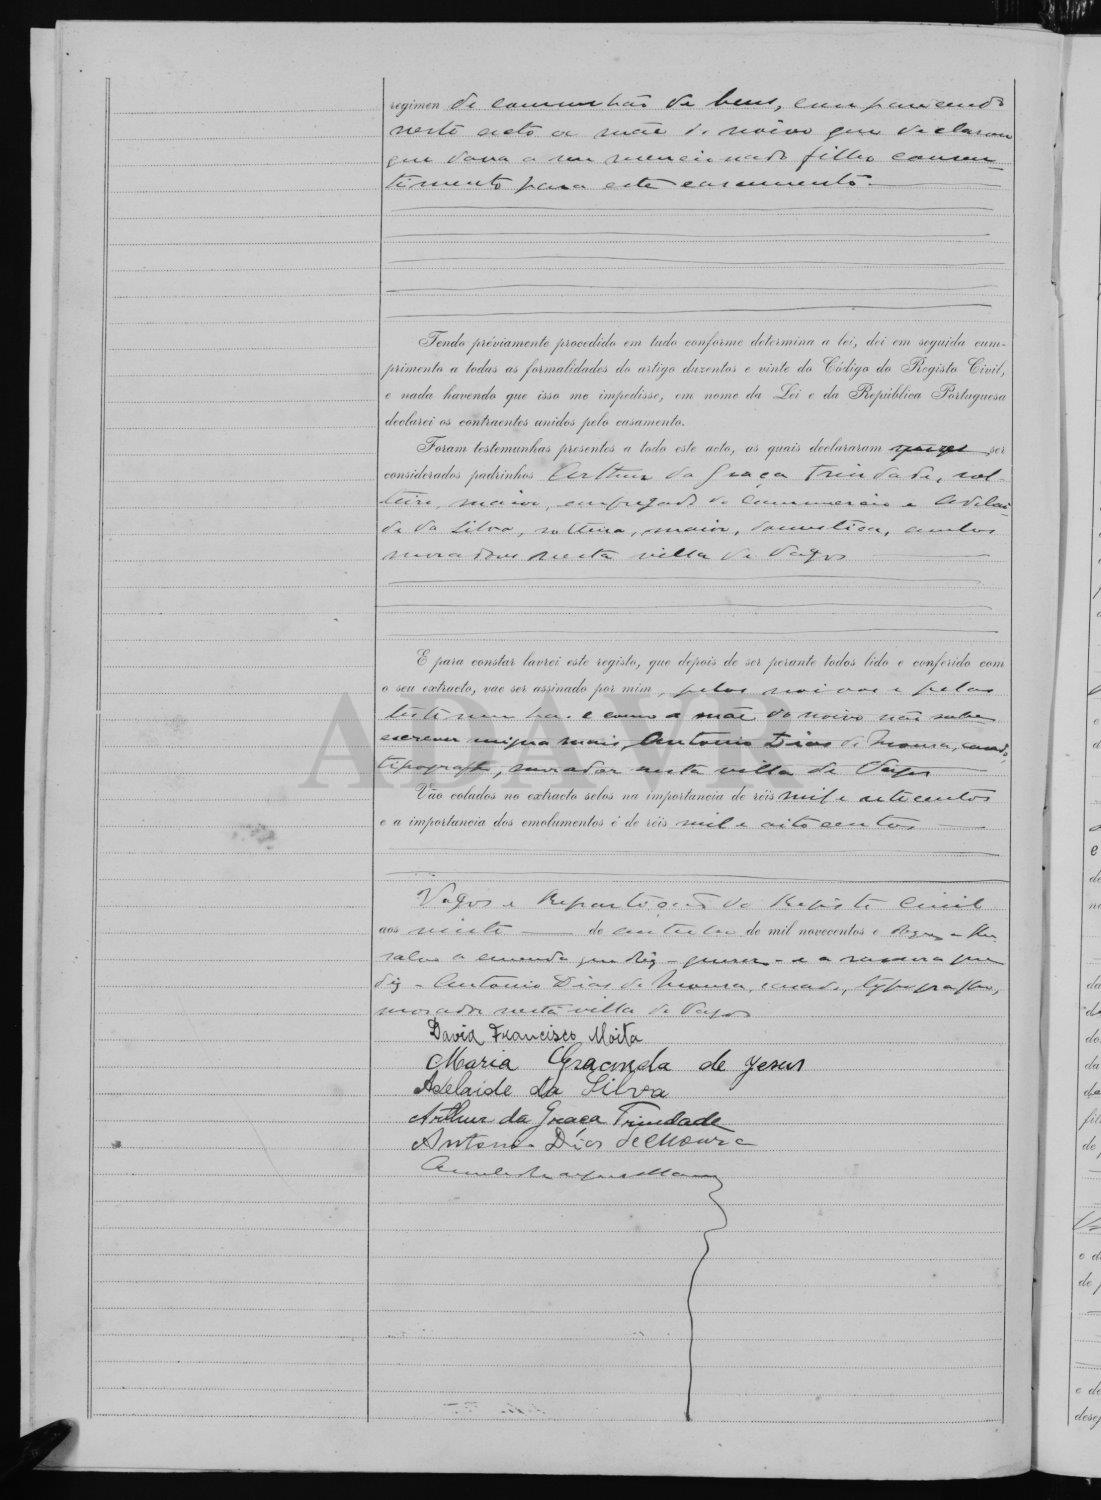 regimen de communhão de bens, comparecendo
neste acto a mãe do noivo que declarou
que dava a seu mencionado filho consen-
timento para este casamento.
Tendo préviamente procedido em tudo conforme determina a lei, dei em seguida cum-
primento a todas as formalidades do artigo duzentos e vinte do Código do Registo Civil,
e nada havendo que isso me impedisse, em nome da Lei e da República Portuguesa
declarei os contraentes unidos pelo casamento.
Foram testemunhas presentes a todo este acto, as quais declararam ser
considerados padrinhos Arthur da Graça Trindade, sol-
teiro, maior, empregado do Commercio e Adelai-
de da Silva, solteira, maior, domestica, ambos
moradores nesta villa de Vagos
E para constar lavrei este registo, que depois de ser perante todos lido e conferido com
o seu extracto, vae ser assinado por mim, pelos noivos e pelas
testemunhas e como a mãe do noivo não sabe
escrever assigna mais, Antonio Dias de Moura, casado,
tipografo, morador nesta villa de Vagos
Vão colados no extracto selos na importancia de réis mil e oitocentos
e a importancia dos emolumentos é de réis mil e oitocentos
Vagos e Repartição do Registo Civil
aos vinte de outubro de mil novecentos e
salvo a emenda que diz - querer - e a rasura que
diz - Antonio Dias de Moura, casado, typographo,
morador nesta villa de Vagos
David Francisco Moita
Maria Gracinda de Jesus
Adelaide da Silva
Arthur da Graça Trindade
Antonio Dias de Moura
ADAVR